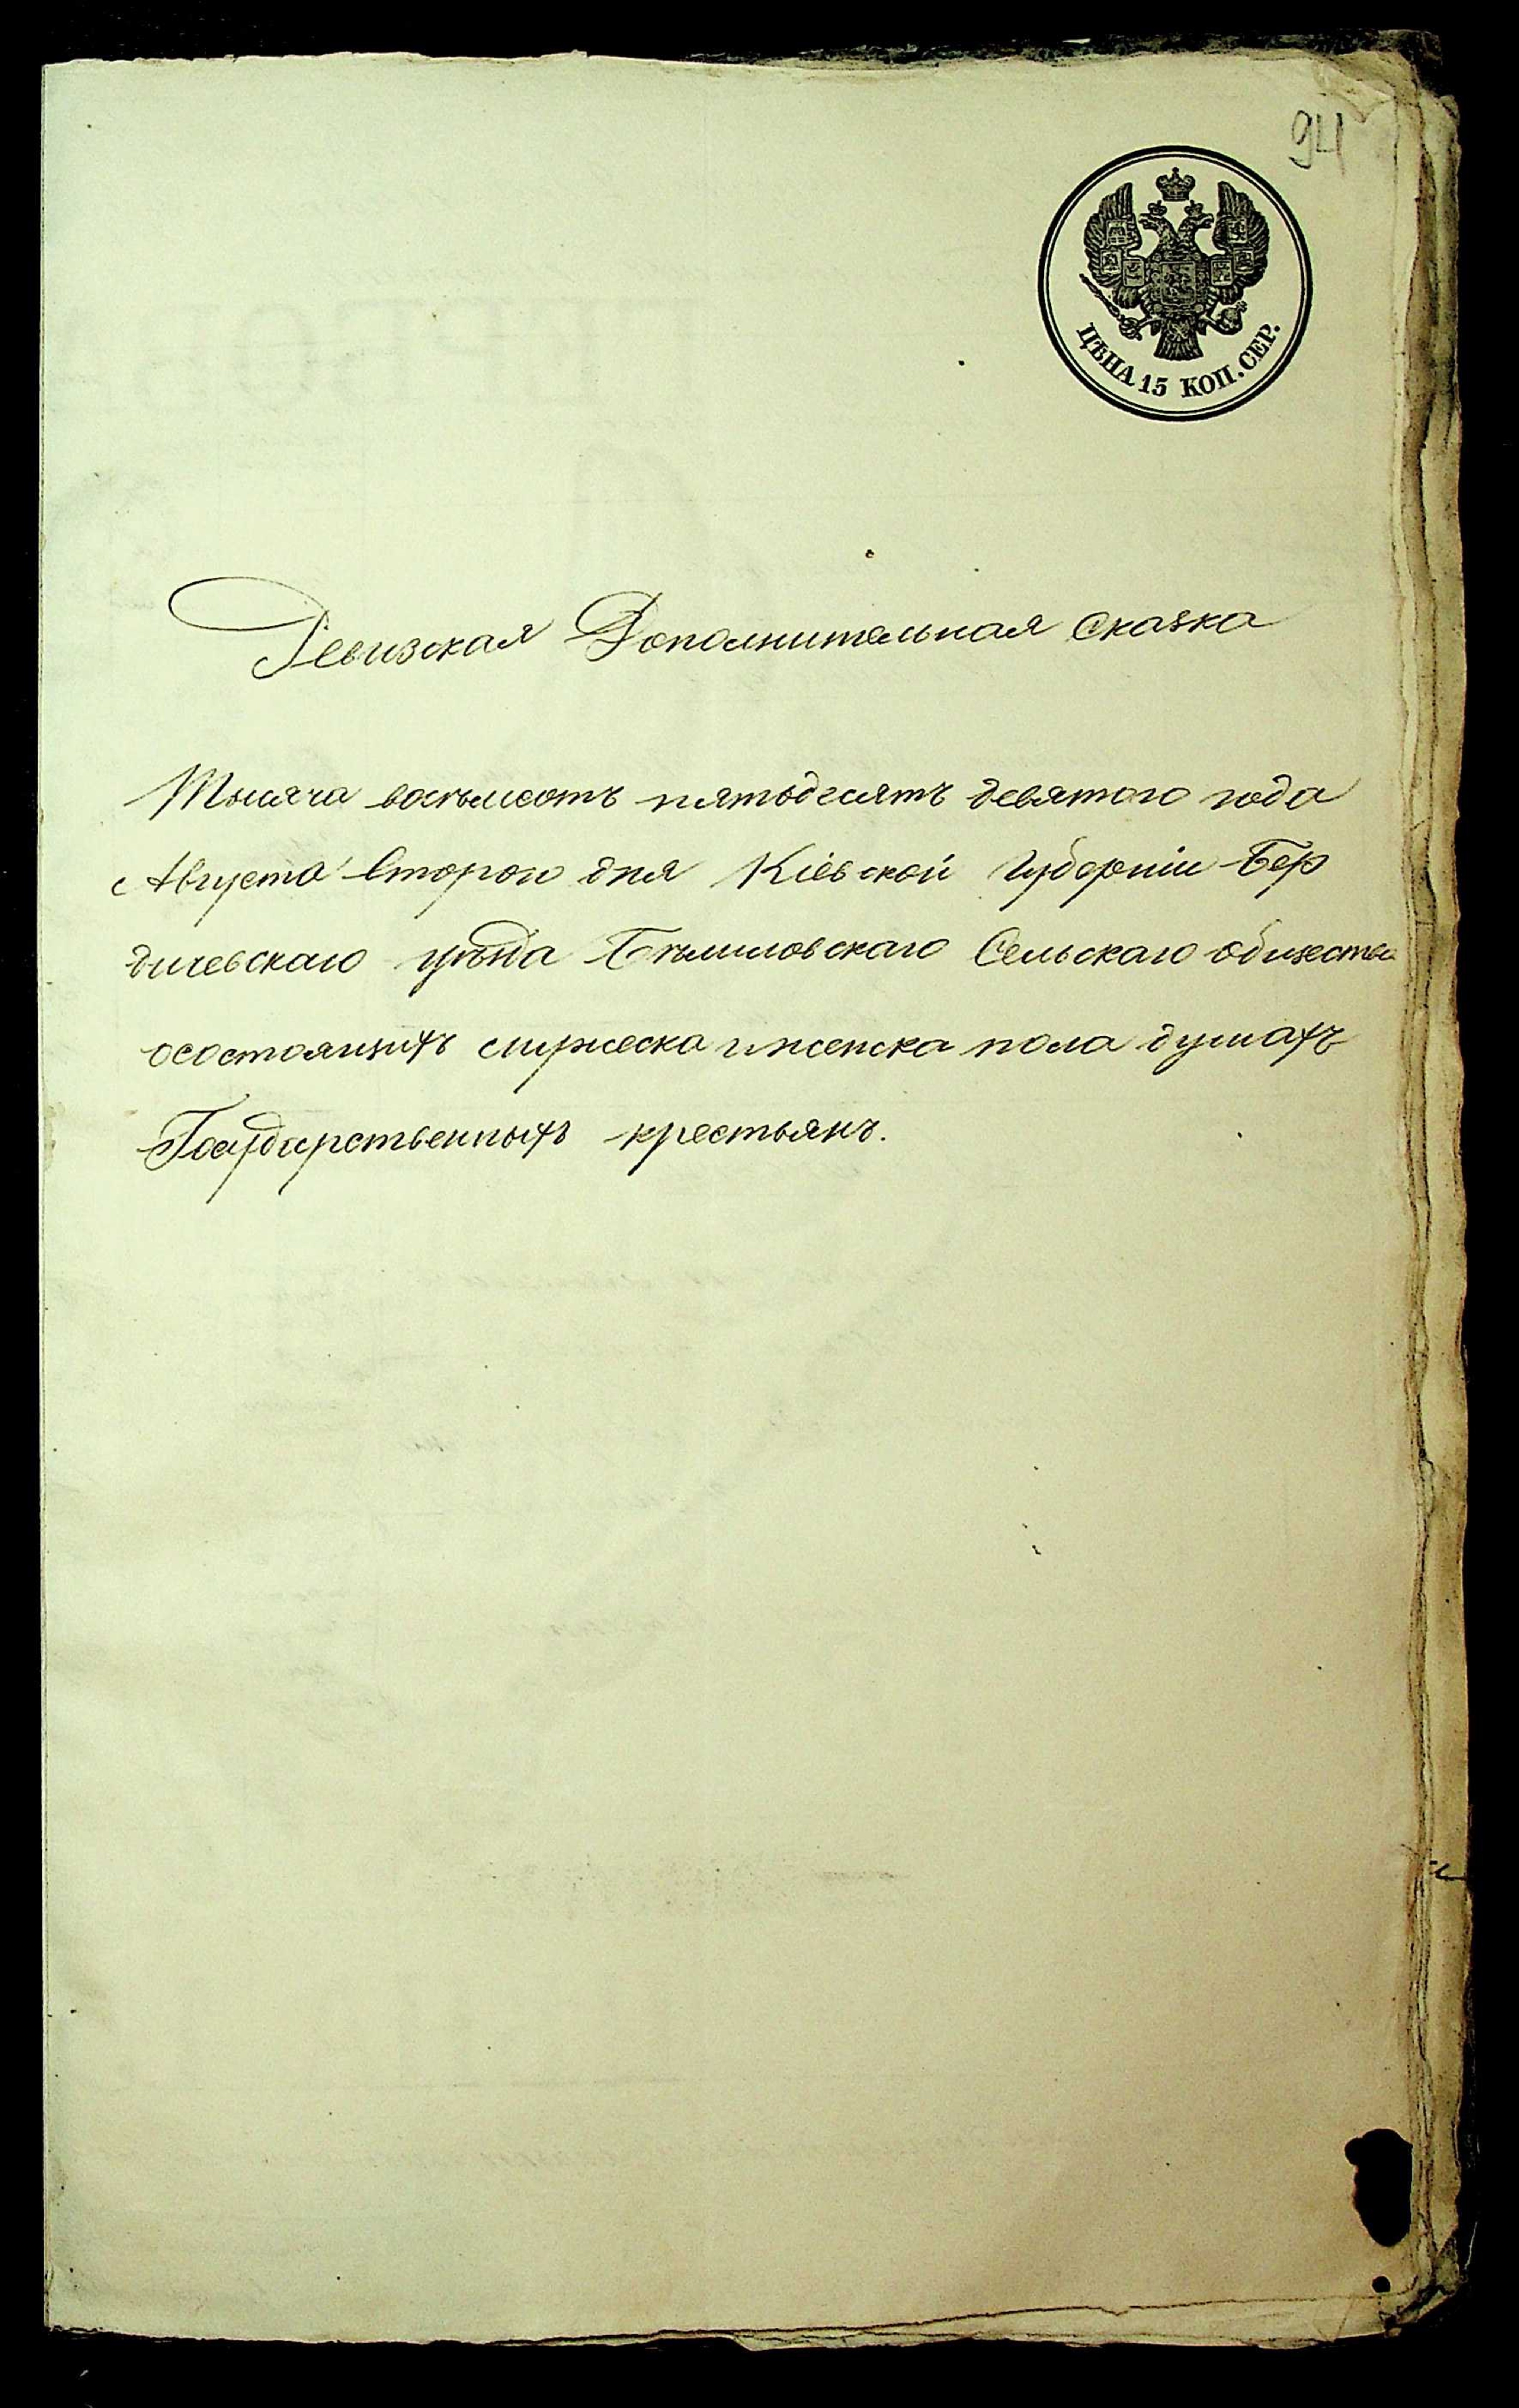 94
ЦѢНА 15 КОП. СЕР.
Ревизская Дополнительная сказка
Тысяча восѣмсотъ пятьдесятъ девятого года
Августа Второго дня Кіевской Губерніи Бер
дичевскаго уѣзда Бѣлиловскаго Сельскаго общества
осостоящихъ мужеска иженска пола душахъ
Государственныхъ крестьянъ.